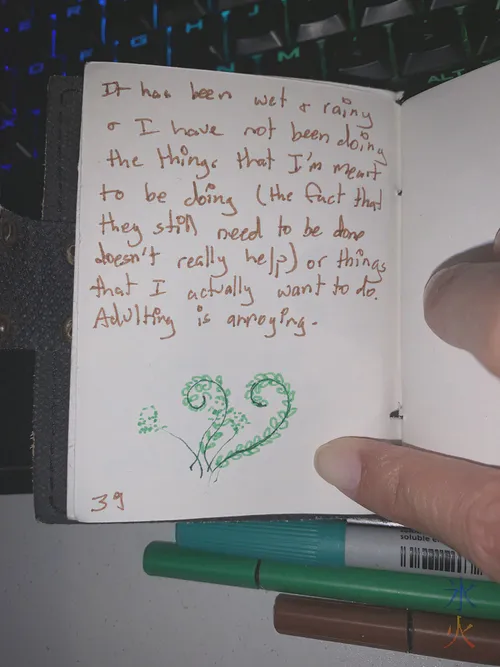 It has been wet & rainy
& I have not been doing
the things that I'm meant
to be doing (the fact that
they still need to be done
doesn't really help) or things
that I actually want to do.
Adulting is annoying.
39
soluble
水
火
ALT
F
G
H
J
N
M